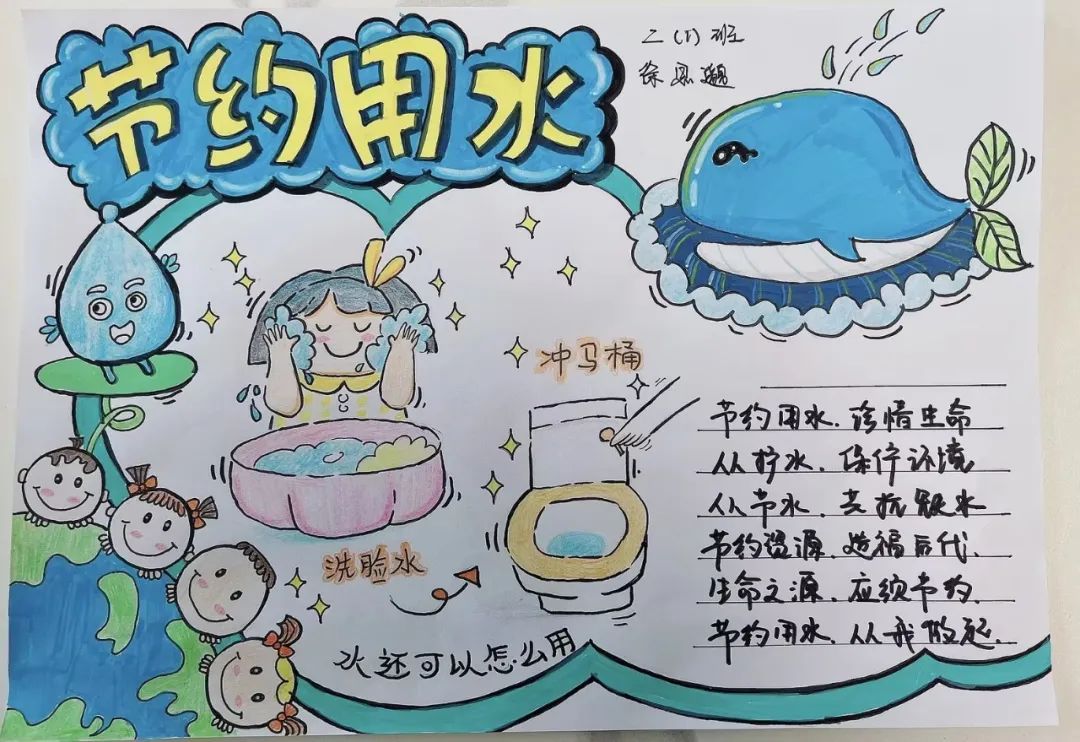 节约用水
二(1)班
徐
冲马桶
洗脸水
水还可以怎么用
节约用水.珍惜生命
从拧水.保 环境
从节水.去抗缺水
节约资源.造福后代.
生命之源.应须节约.
节约用水.从我做起.